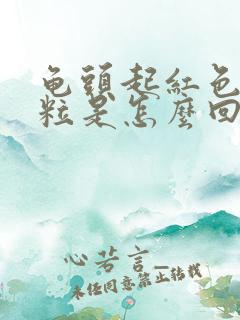 龟頭起紅色
粒是怎麼回
心若言
未经同意禁止转载